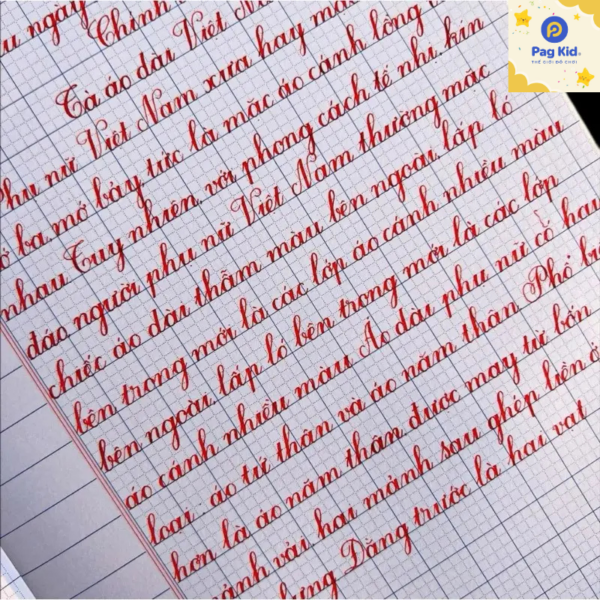 ngày
Chính
Tà áo dài Việt Nam xưa hay mặc
Phụ nữ Việt Nam tức là mặc áo cánh lồng
ba, mớ bảy tức là mặc áo cánh
nhau Tuy nhiên, với phong cách tế nhị, kín
đáo người phụ nữ Việt Nam thường mặc
chiếc áo dài thẫm màu bên ngoài, lấp ló
bên trong mới là các lớp áo cánh nhiều màu
bên ngoài, lấp ló bên trong mới là các lớp
áo cánh nhiều màu Áo dài phụ nữ có hai
loại: áo tứ thân và áo năm thân Phổ
hơn là áo năm thân được may từ bốn
mảnh vải, hai mảnh sau ghép liền ở
lưng Đằng trước là hai vạt
Pag Kid
THẾ GIỚI ĐỒ CHƠI